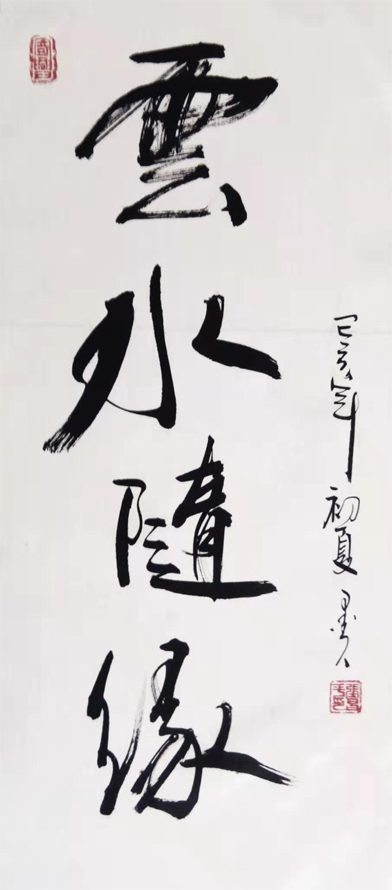 雲水隨緣
己亥年初夏